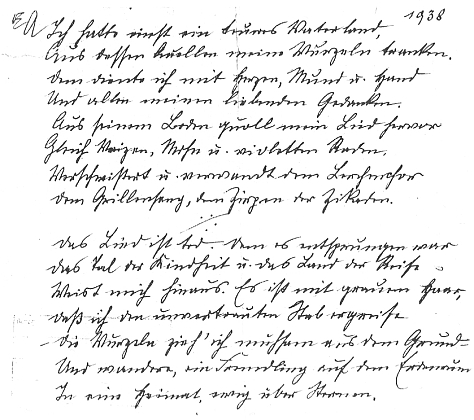 1938
A Ich hatte einst ein teures Vaterland,
Aus dessen Quellen meine Wurzeln tranken.
Dem diente ich mit Herzen, Mund u. Hand
Und allen meinen liebenden Gedanken.
Aus seinem Boden quoll mein Lied hervor
Gleich Weizen, Mohn u. violetten Raden.
Verschwistert u. verwandt dem Lerchenchor
Dem Grillensang, dem Zirpen der Zikaden.
Das Lied ist tot. Dem es entsprungen war
Das Tal der Kindheit u. das Land der Reife
Weist mich hinaus. Es ist mit grauem Haar,
Daß ich den unvertrauten Stab ergreife
Die Wurzeln zieh' ich mühsam aus dem Grund
Und wandere, ein Fremdling auf dem Erdenrund
In eine Heimat, ewig über Sternen.